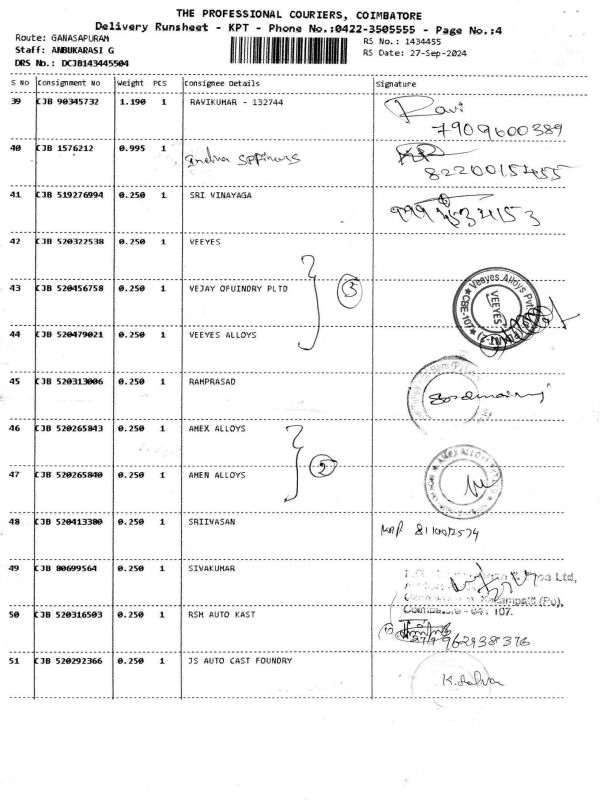 THE PROFESSIONAL COURIERS, COIMBATORE
Delivery Runsheet - KPT - Phone No.:0422-3505555 - Page No.:4
Route: GANASAPURAM
RS No.: 1434455
Staff: ANBUKARASI G
RS Date: 27-Sep-2024
DRS No.: DCJB143445504
S No Consignment No Weight PCS Consignee Details Signature
39 CJB 90345732 1.190 1 RAVIKUMAR - 132744 Ravi
7909600389
40 CJB 1576212 0.995 1
8220015455
41 CJB 519276994 0.250 1 SRI VINAYAGA
42 CJB 520322538 0.250 1 VEEYES
43 CJB 520456758 0.250 1 VEJAY OFUINDRY PLTD 3 Veeyes Alloys Pvt
VEEYES
44 CJB 520479021 0.250 1 VEEYES ALLOYS
45 CJB 520313006 0.250 1 RAMPRASAD
46 CJB 520265843 0.250 1 AMEX ALLOYS
47 CJB 520265840 0.250 1 AMEN ALLOYS 2 AMEX ALLOYS
48 CJB 520413380 0.250 1 SRIIVASAN
49 CJB 80699564 0.250 1 SIVAKUMAR
Ltd,
(Po),
50 CJB 520316503 0.250 1 RSM AUTO KAST Coimbatore - 641 107.
51 CJB 520292366 0.250 1 JS AUTO CAST FOUNDRY